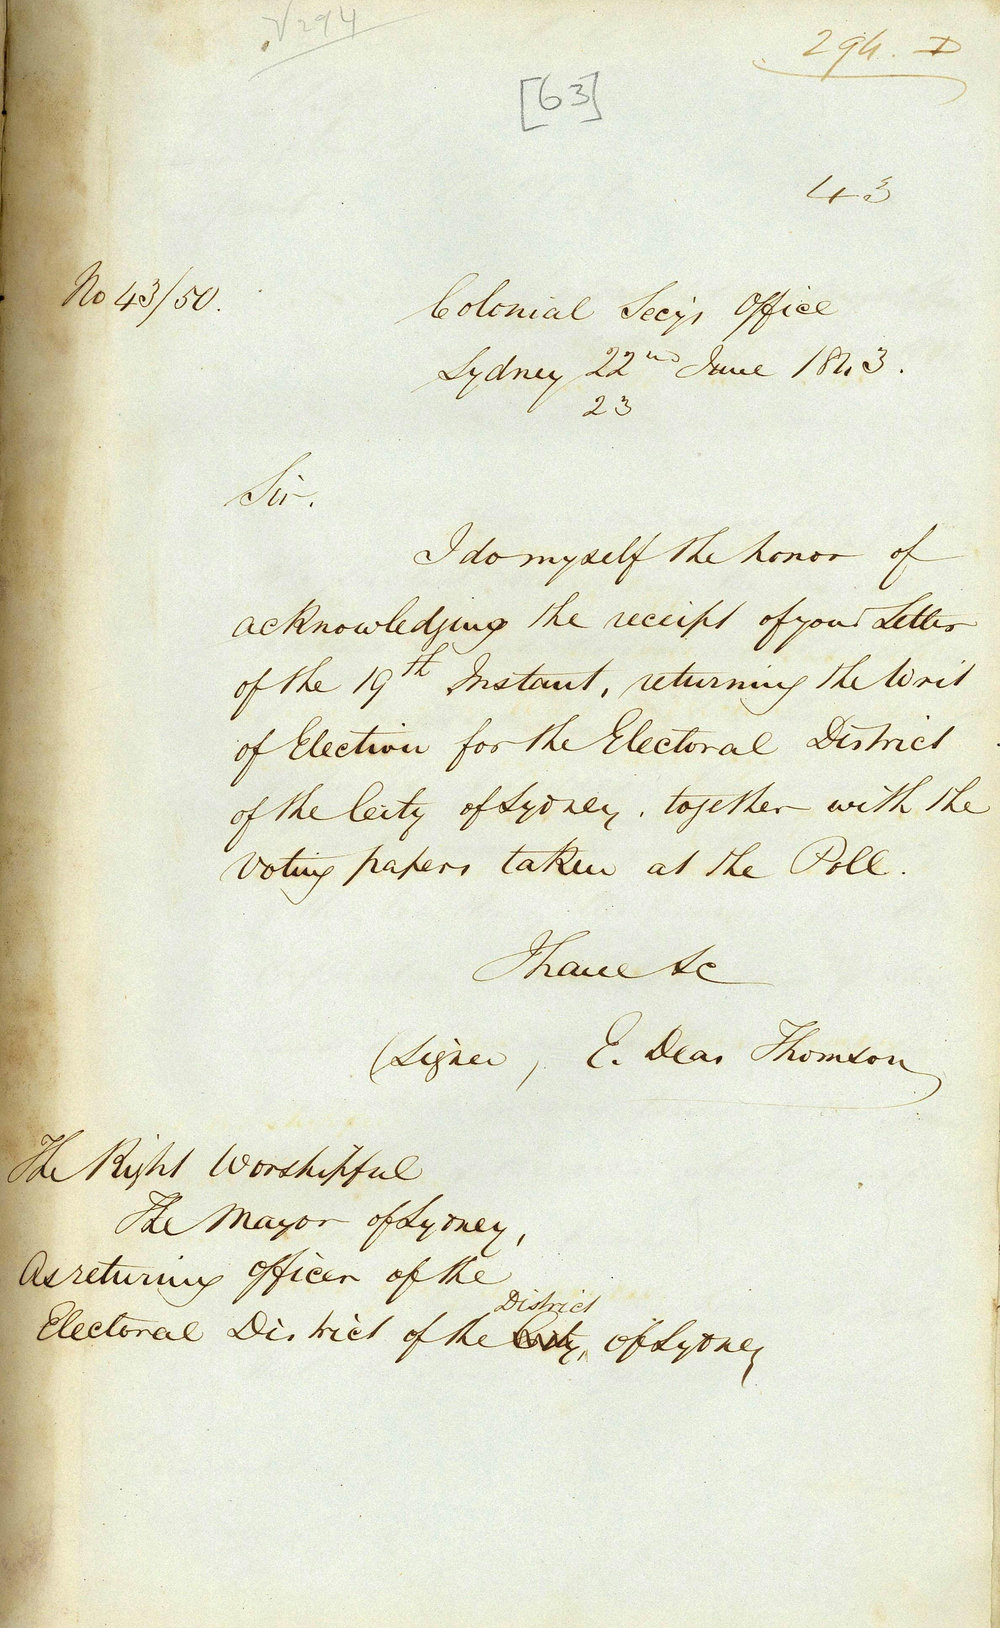 √294
294. D
[63]
43
No 43/50.
Colonial Secy's Office
Sydney 22nd June 1843.
23
Sir.
I do myself the honor of
acknowledging the receipt of your Letter
of the 19th Instant, returning the Writ
of Election for the Electoral District
of the City of Sydney, together with the
voting papers taken at the Poll.
I have &c
(Signed) E. Deas Thomson
The Right Worshipful
The Mayor of Sydney,
As returning Officer of the
District
Electoral District of the City, of Sydney